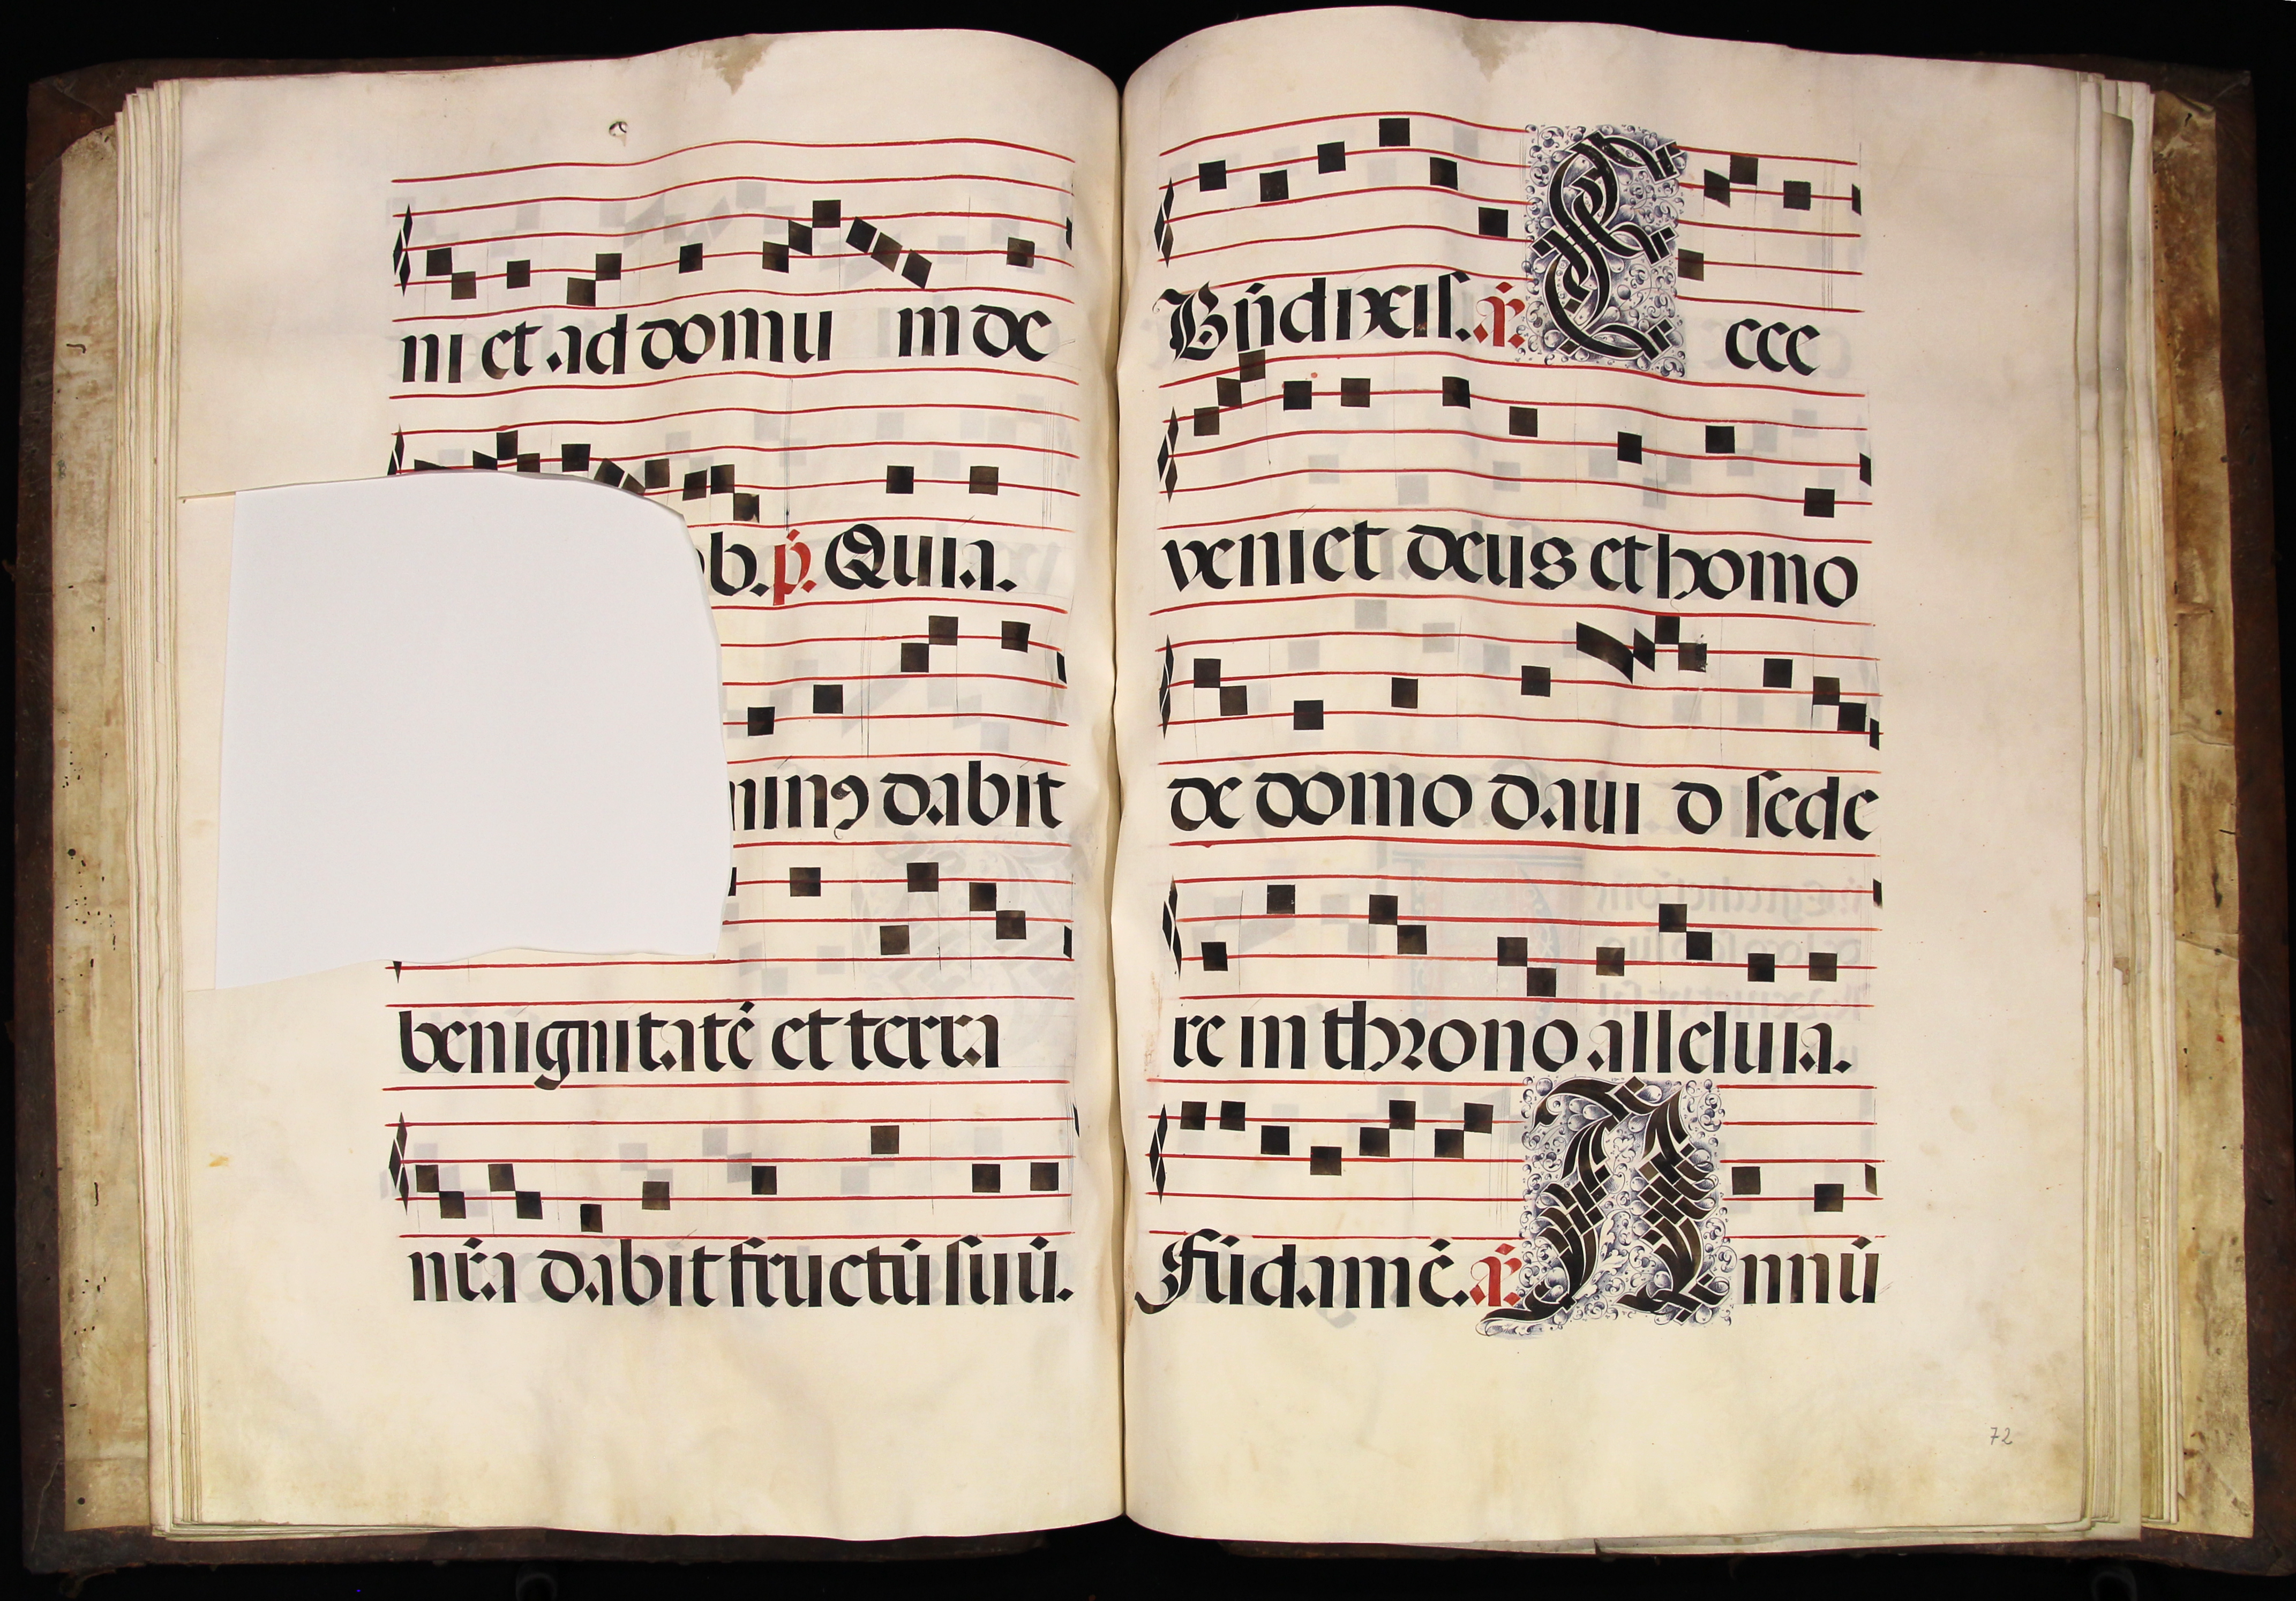 ni et ad domu in de
b. p̃. Quia.
nin9 dabit
benignitatē et terra
nr̃a dabit fructū suū.
Bñdixisſ. añ. E cce
veniet deus et homo
de domo daui d sede
re in throno alleluia.
Fūdamē. añ. A nnū
72